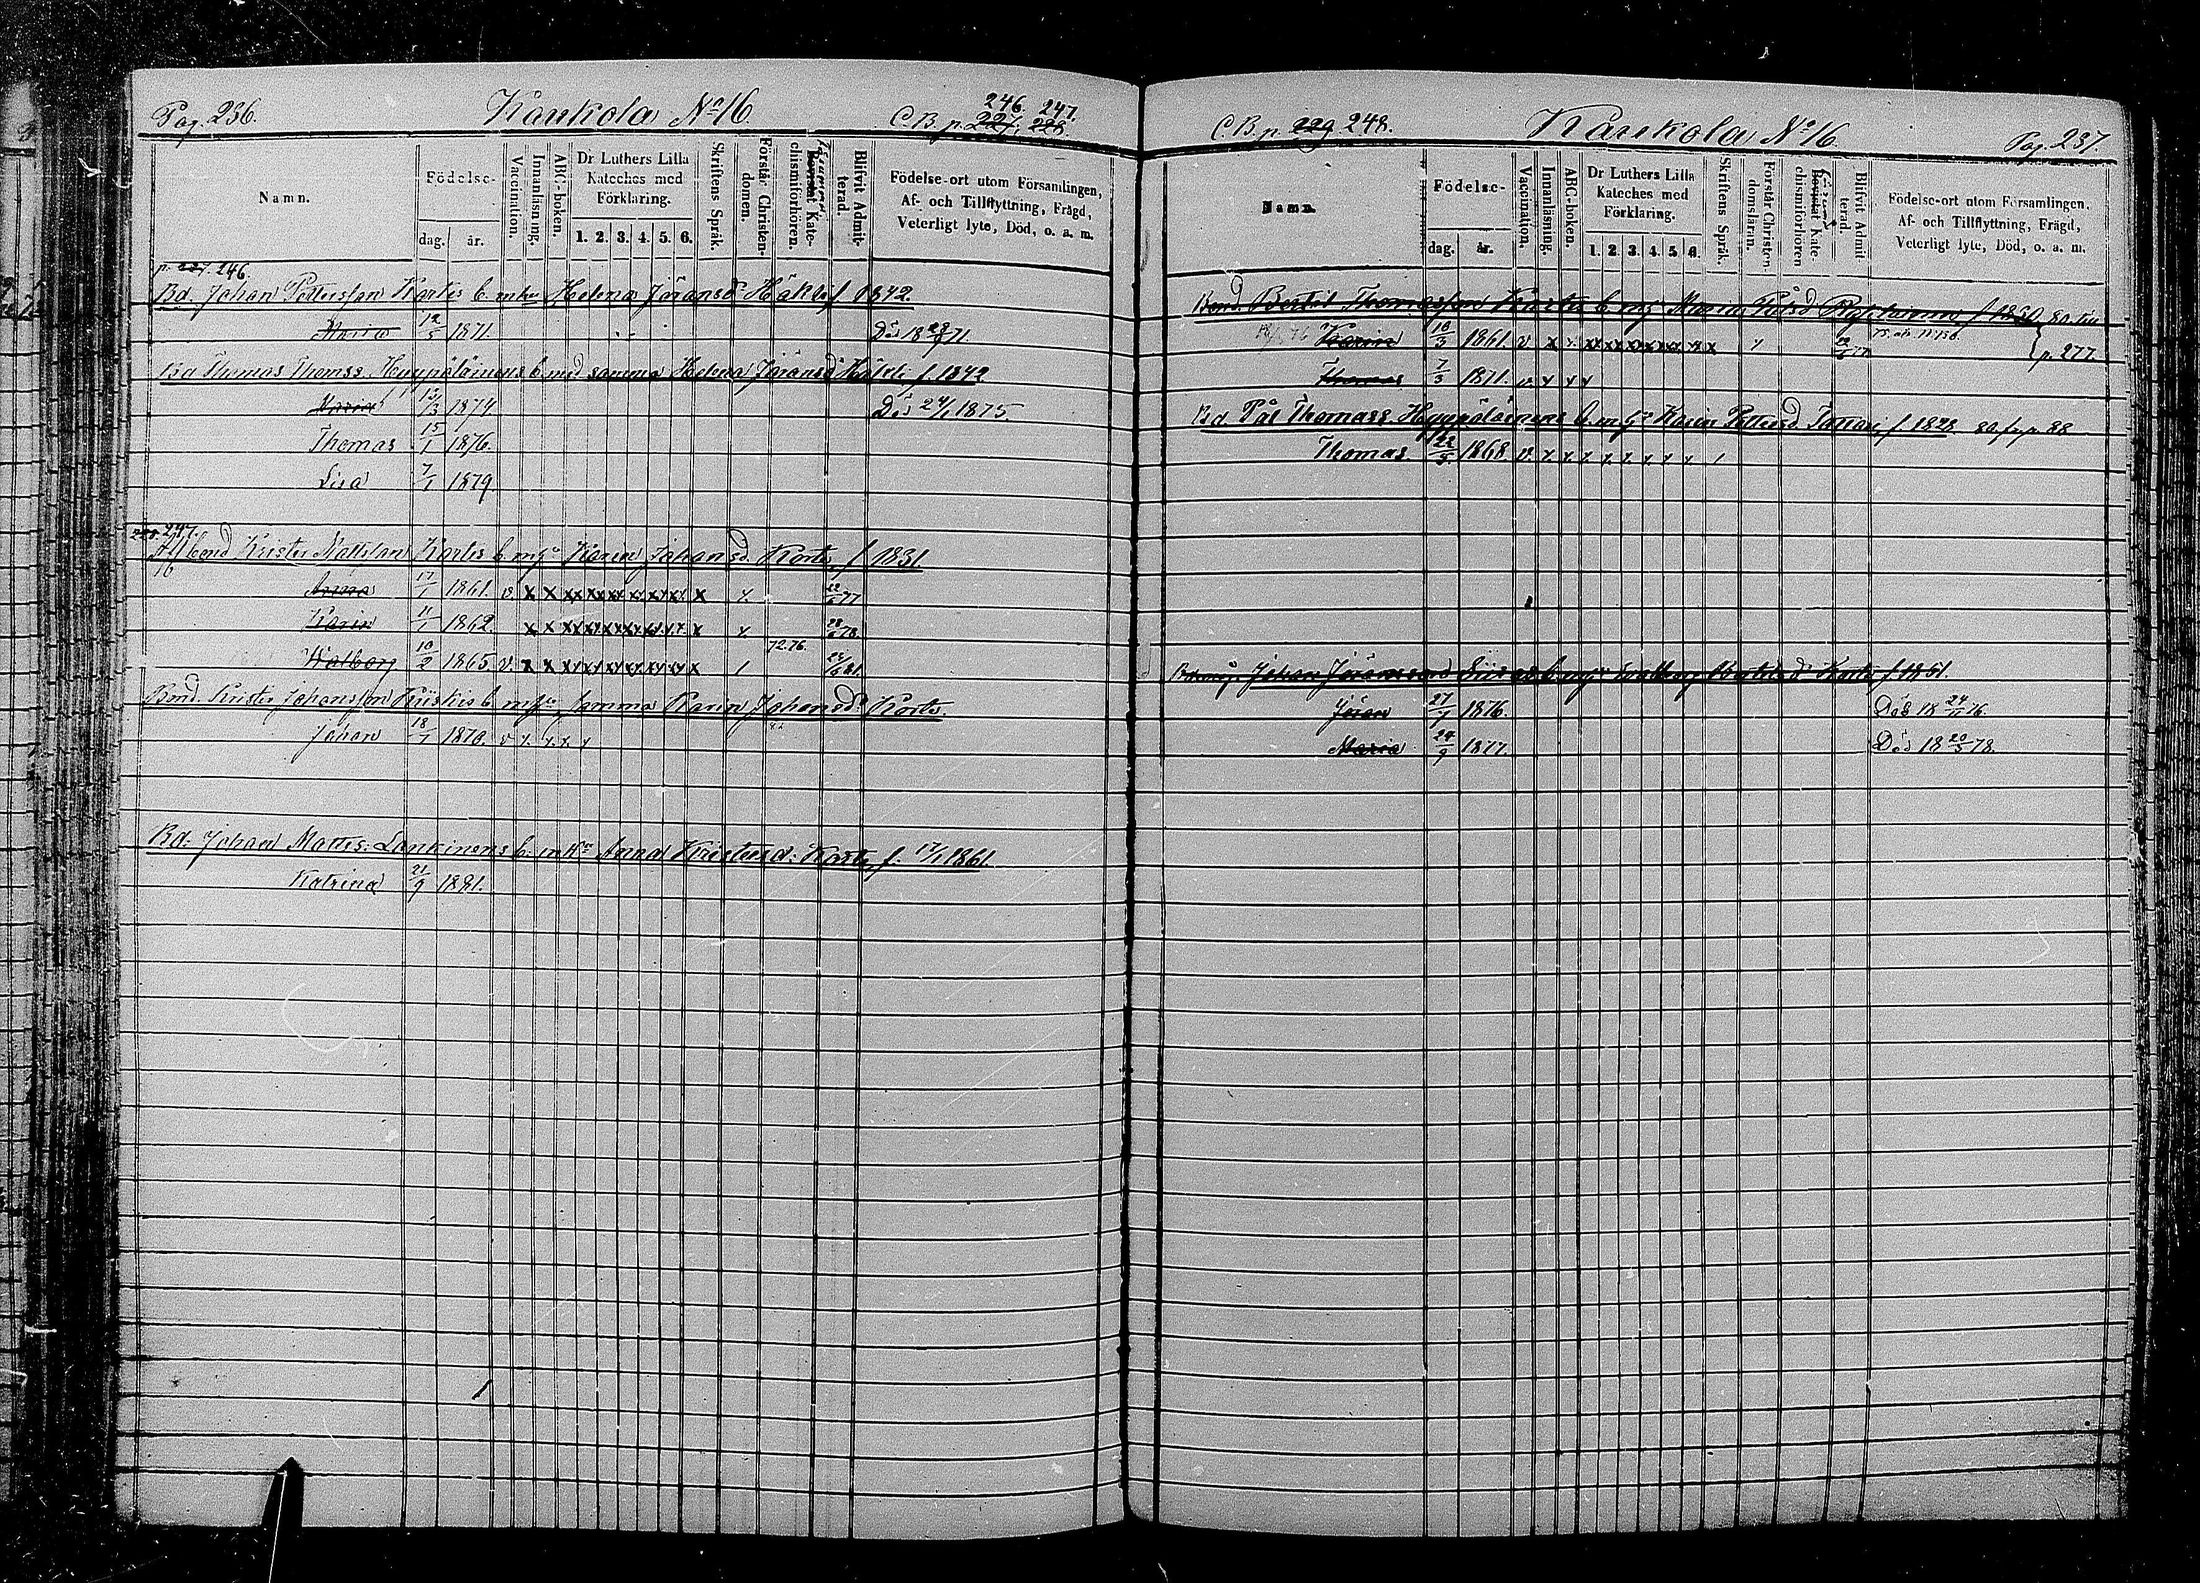 Pag. 236.
Kaukola No 16
C.B. p. 227, 228. 246. 247.
Namn.
Födelse-
dag. år.
Vaccination.
Innanläsning.
ABC-boken.
Dr Luthers Lilla Kateches med Förklaring.
1. 2. 3. 4. 5. 6.
Skriftens Språk.
Förstår Christendomen.
Bevistat Katechismiförhören.
Blifvit Admitterad.
Födelse-ort utom Församlingen, Af- och Tillflyttning, Frägd, Veterligt lyte, Död, o. a. m.
p. 227. 246.
Bd. Johan Pettersson Kortis b. m. Helena Jöransd Häkli f 1842.
Maria 12/5 1871. Död 18 /71.
Thomas Thomass. Hyypöläinens b. med samma Helena Jöransd Häkli f. 1842
Maria 13/3 1874. Död 24/1 1875.
Thomas 15/1 1876.
Lisa 7/1 1879.
228. 247.
bond Krister Mattsson Kortis b. m. Karin Johansd. Kortis f 1831
Anna 17/1 1861. v. x x xx xx xx xx xx xx x 77
Karin 11/1 1862. x x xx xx xx xx x 78
72.76.
Walborg 10/2 1865. v. x x xx xx xx xx xx xx x 1 81.
Bond. Krister Johansson b. m samma Karin Johansd Kortis.
Johan 18/1 1870. v x. x. x. x
Bd. Johan Matts: Lankinens b. m Anna Kristersd: Kortis f. 17/1 1861
Katrina 21/9 1881.
C.B. p. 229 248.
Kaukola No 16.
Pag. 237.
Namn.
Födelse-
dag. år.
Vaccination.
Innanläsning.
ABC-boken.
Dr Luthers Lilla Kateches med Förklaring.
1. 2. 3. 4. 5. 6.
Skriftens Språk.
Förstår Christendomsläran.
Bevistat Katechismiförhören
Blifvit Admitterad.
Födelse-ort utom Församlingen, Af- och Tillflyttning, Frägd, Veterligt lyte, Död, o. a. m.
Bond Bertil Thomasson b. m Maria f 1830
Karin 10/3 1861. v x x. xx xx xx xx xx xx x 77 p. 277.
Thomas 7/3 1871. v. x x x
Bd. Pål Thomass. Hyypöläinens b. m Karin Pettersd Tattari f 1828 p. 88
Thomas 22/3. 1868. v. x. x. x. x. x. x. x. x. 1
Johan Jöransson b. m Walborg Bertilsd Kortis f 1851.
Jöran 27/1 1876. Död 18 24/11 76.
Maria 24/9 1877. Död 18 20/5 78.